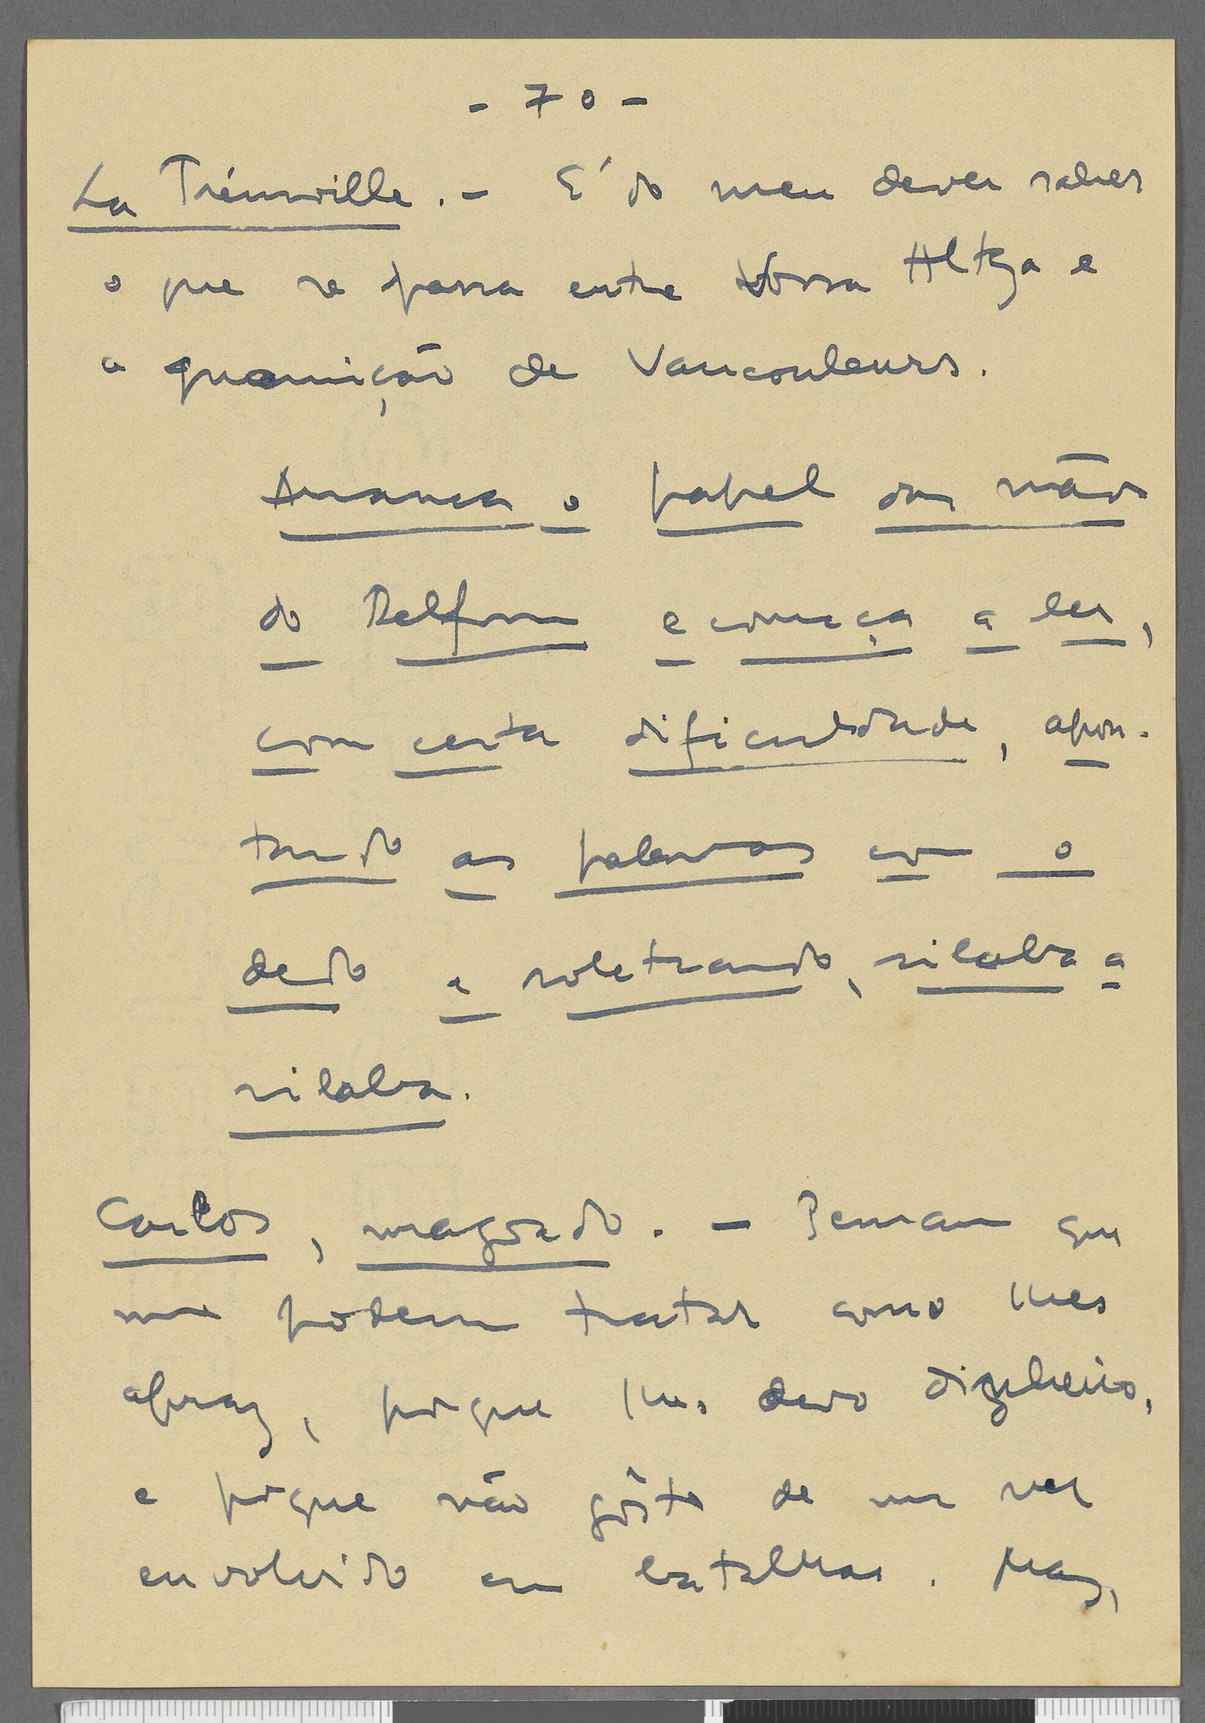 - 70 -
La Trémuille. - É do meu dever saber
o que se passa entre Vossa Alteza e
a guarnição de Vaucouleurs.
Arranca o papel das mãos
do Delfim e começa a ler,
com certa dificuldade, apon-
tando as palavras com o
dedo e soletrando, silaba a
silaba.
Carlos, magoado. - Pensam que
me podem tratar como lhes
apraz, porque lhes devo dinheiro,
e porque não gôsto de me ver
envolvido em batalhas. Mas,